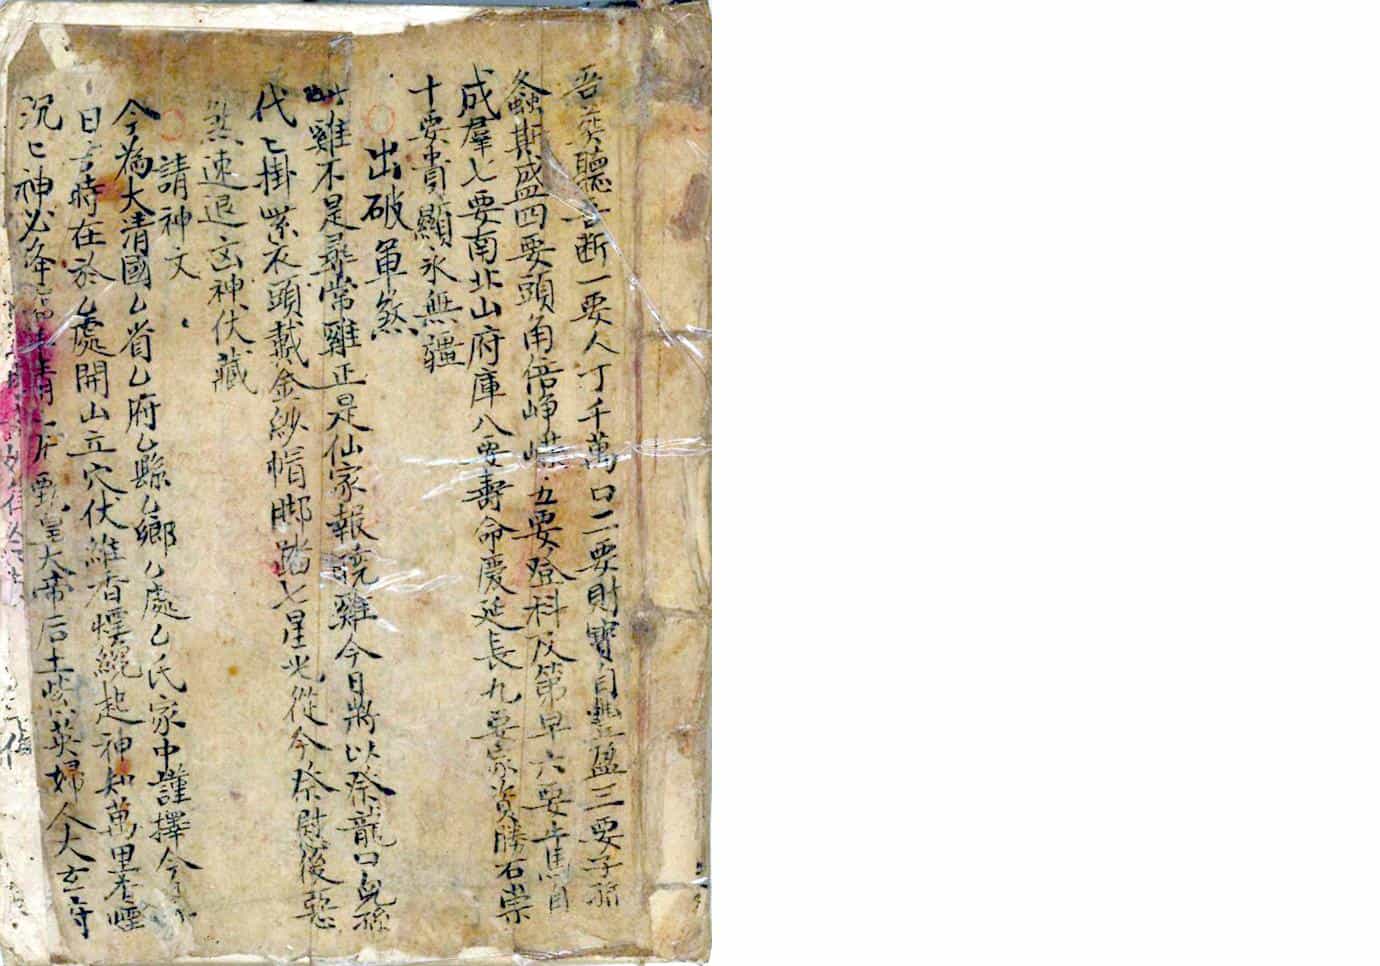 吾葬聽吾断一要人丁千萬口二要財寶自豐盈三要子孫
螽斯盛四要頭角倍崢嶸五要登科及第早六要牛馬自
成羣七要南北山府庫八要壽命慶延長九要家資勝石崇
十要貴顯永無疆
出破軍煞
此雞不是尋常雞正是仙家報曉雞今日將以祭龍口兒孫
代匕掛紫衣頭戴金紗帽脚踏七星光從今祭慰後惡
煞速退凶神伏藏
請神文
今為大清國厶省厶府厶縣厶鄉厶處厶氏家中謹擇今
日吉時在於厶處開山立穴伏維香煙纔起神知萬里香煙
沉匕神必降
皇大帝后土紫英婦人大玄